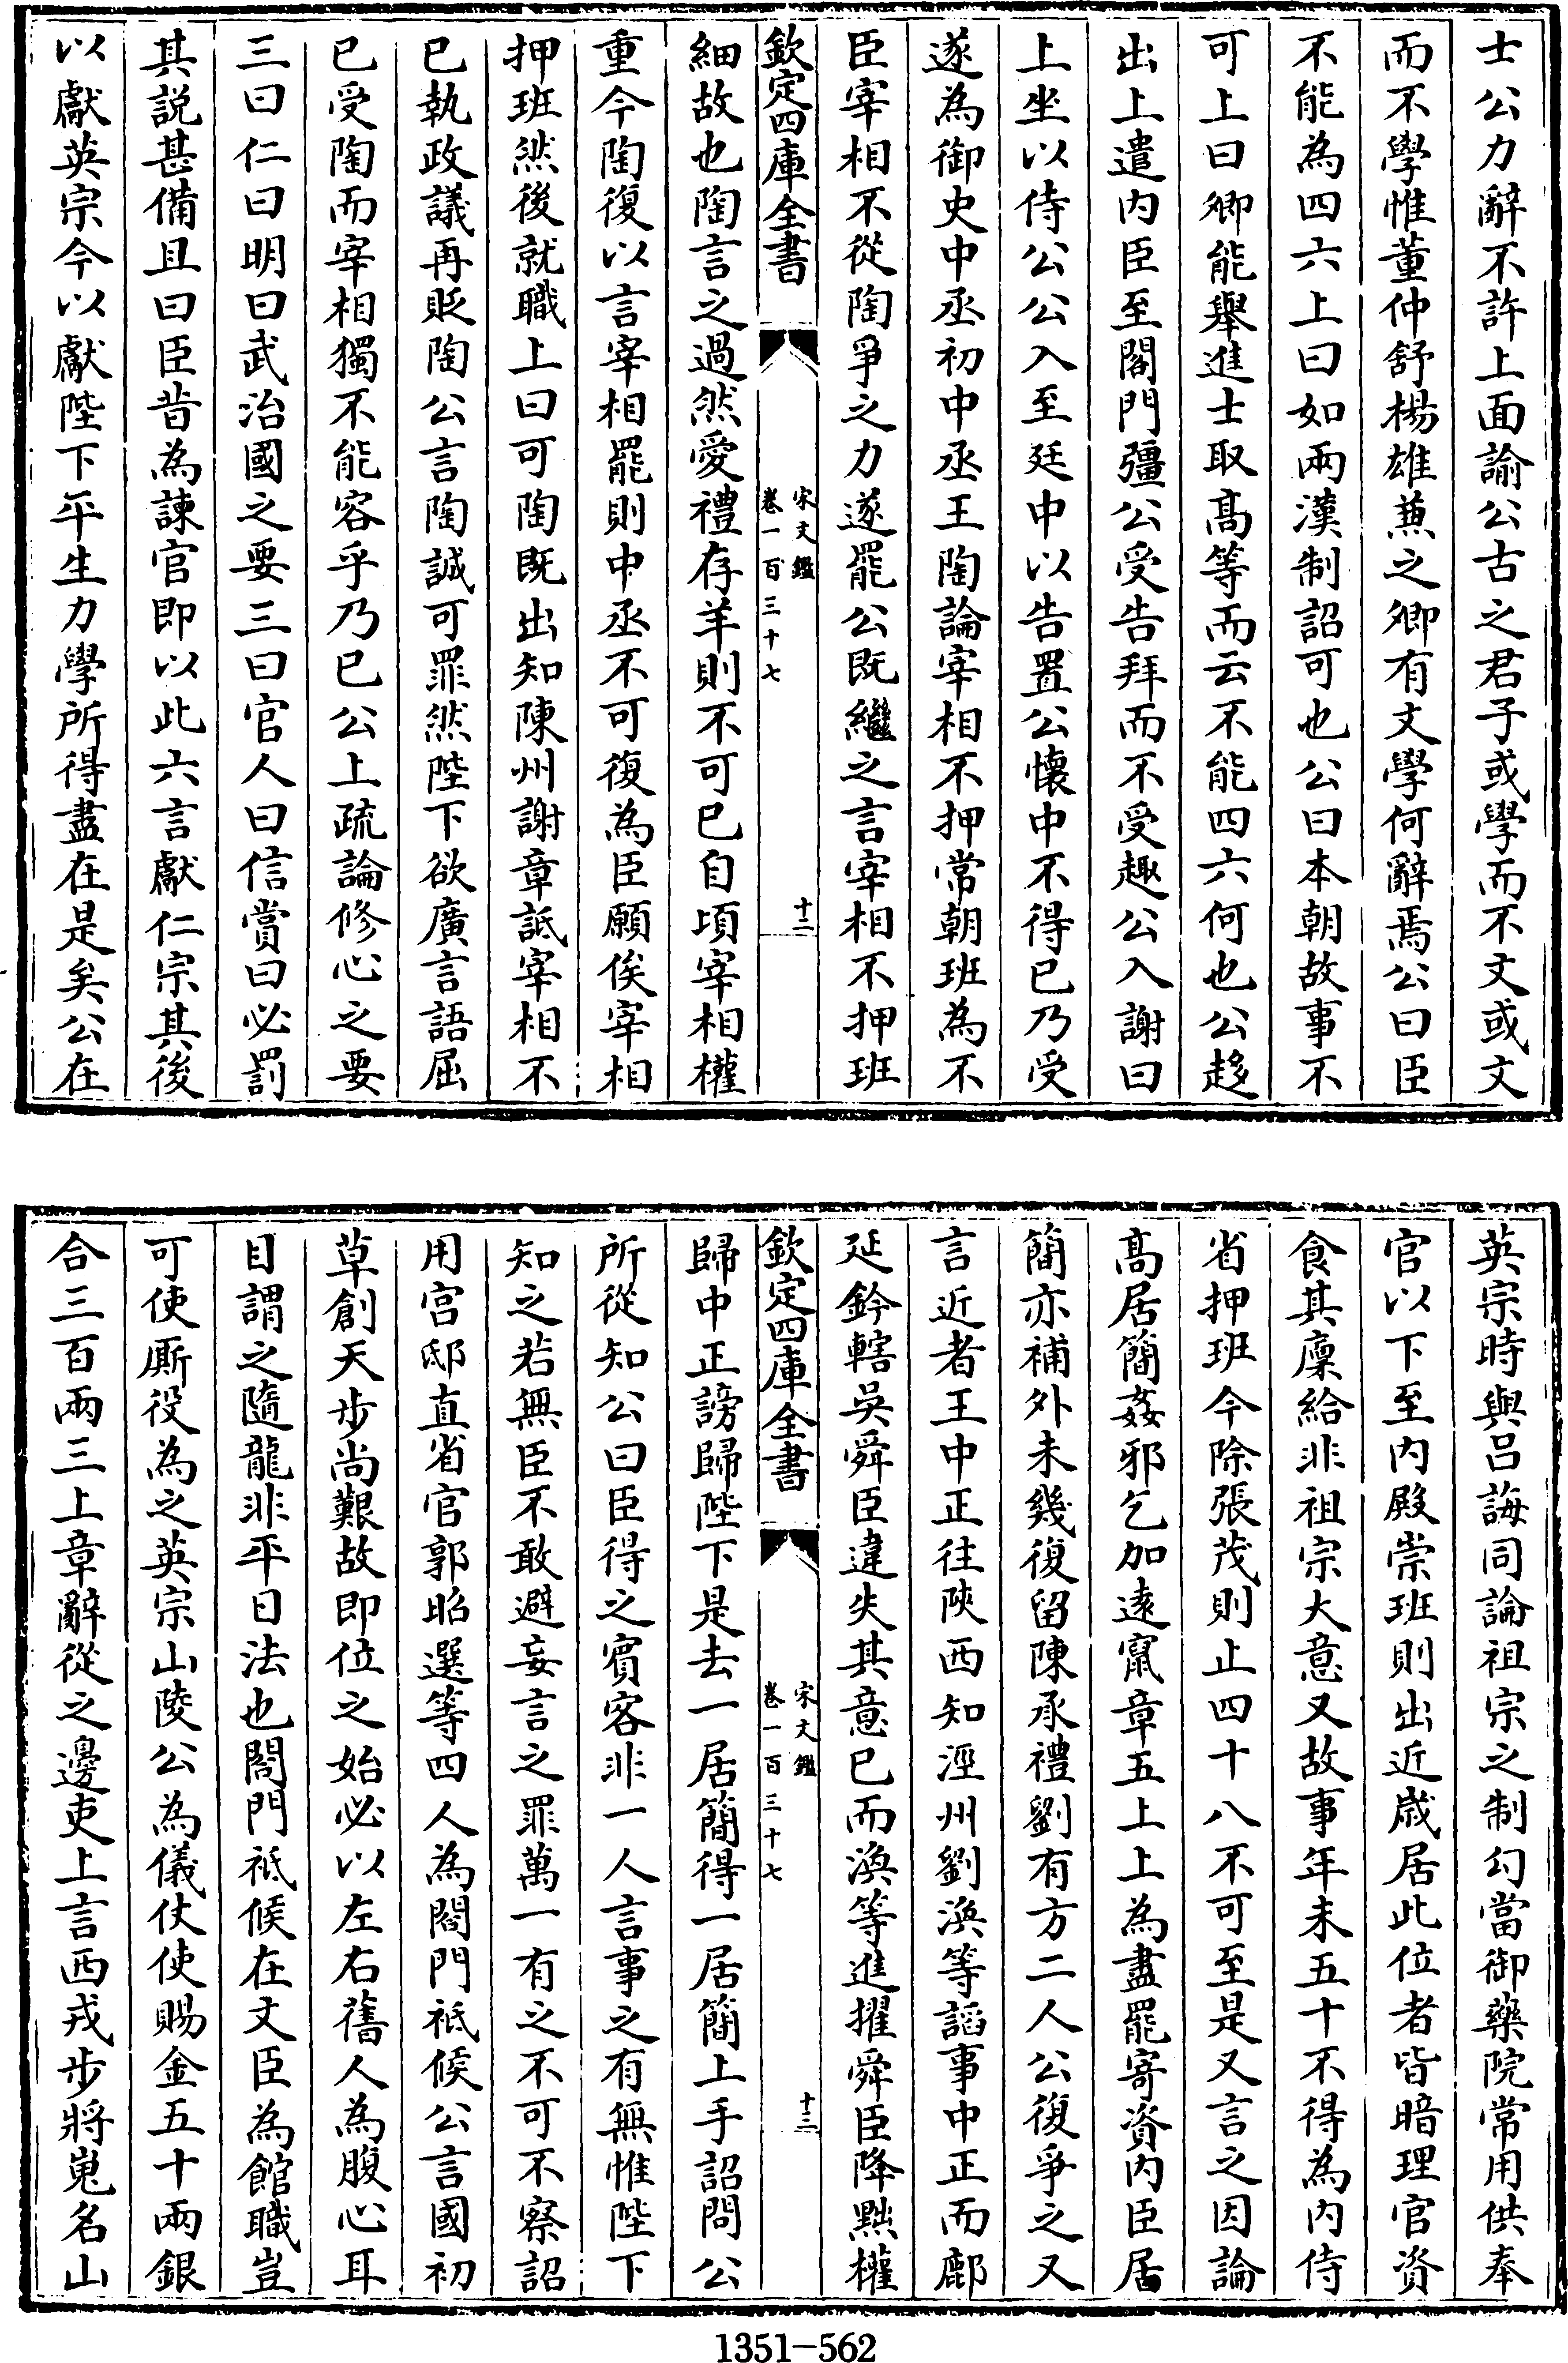 士公力辭不許上面諭公古之君子或學而不文或文
而不學惟董仲舒楊雄兼之卿有文學何辭焉公曰臣
不能為四六上曰如兩漢制詔可也公曰本朝故事不
可上曰卿能舉進士取髙等而云不能四六何也公趍
出上遣内臣至閤門彊公受告拜而不受趣公入謝曰
上坐以待公公入至廷中以告置公懷中不得已乃受
遂為御史中丞初中丞王陶論宰相不押常朝班為不
臣宰相不從陶爭之力遂罷公既繼之言宰相不押班
欽定四庫全書
宋文鑑
卷一百三十七
十二
細故也陶言之過然愛禮存羊則不可已自頃宰相權
重今陶復以言宰相罷則中丞不可復為臣願俟宰相
押班然後就職上曰可陶既出知陳州謝章詆宰相不
已執政議再貶陶公言陶誠可罪然陛下欲廣言語屈
已受陶而宰相獨不能容乎乃已公上疏論修心之要
三曰仁曰明曰武治國之要三曰官人曰信賞曰必罰
其説甚備且曰臣昔為諫官即以此六言獻仁宗其後
以獻英宗今以獻陛下平生力學所得盡在是矣公在
英宗時與吕誨同論祖宗之制勾當御藥院常用供奉
官以下至内殿崇班則出近歲居此位者皆暗理官資
食其廩給非祖宗大意又故事年未五十不得為内侍
省押班今除張茂則止四十八不可至是又言之因論
髙居簡姦邪乞加逺竄章五上上為盡罷寄資内臣居
簡亦補外未幾復留陳承禮劉有方二人公復爭之又
言近者王中正往陝西知涇州劉渙等諂事中正而鄜
延鈐轄吳舜臣違失其意已而渙等進擢舜臣降黜權
欽定四庫全書
宋文鑑
卷一百三十七
十三
歸中正謗歸陛下是去一居簡得一居簡上手詔問公
所從知公曰臣得之賓客非一人言事之有無惟陛下
知之若無臣不敢避妄言之罪萬一有之不可不察詔
用宫邸直省官郭昭選等四人為閤門祗候公言國初
草創天步尚艱故即位之始必以左右舊人為腹心耳
目謂之隨龍非平日法也閤門祗候在文臣為館職豈
可使厮役為之英宗山陵公為儀仗使賜金五十兩銀
合三百兩三上章辭從之邊吏上言西戎步將嵬名山
1351-562